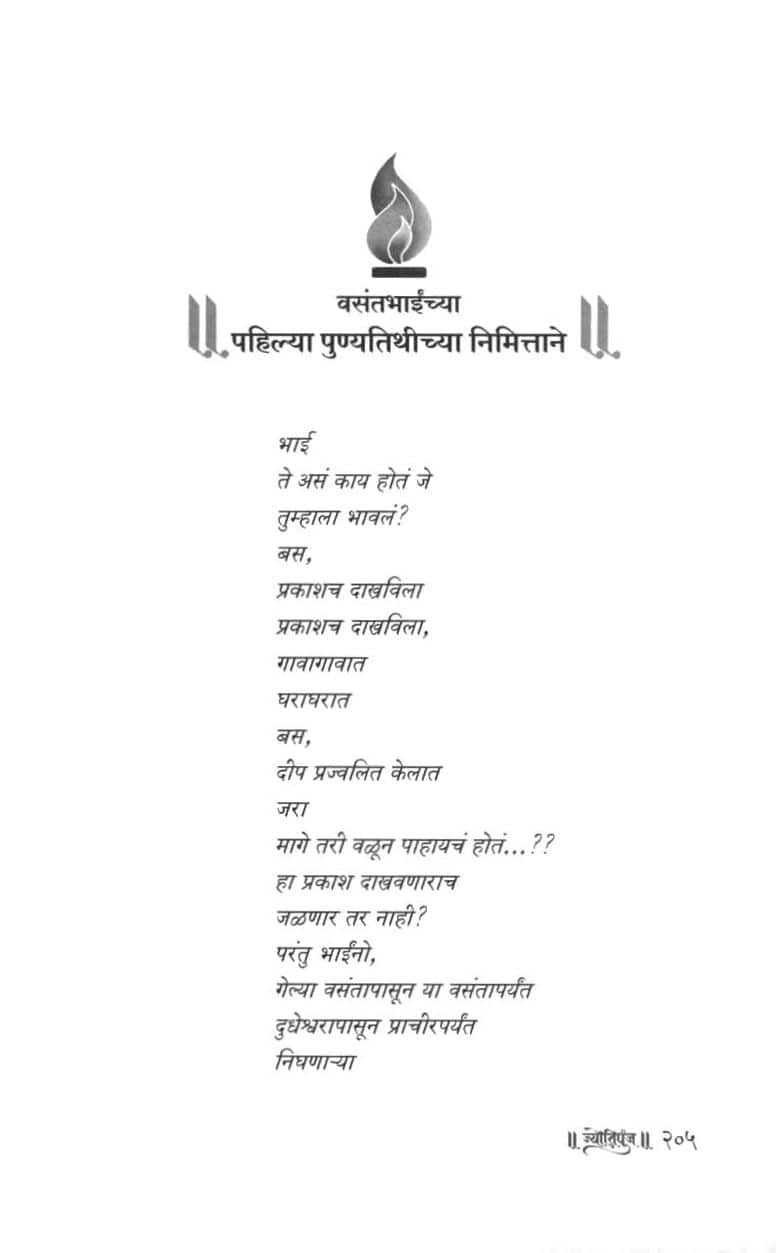 वसंतभाईंच्या
॥ पहिल्या पुण्यतिथीच्या निमित्ताने ॥
भाई
ते असं काय होतं जे
तुम्हाला भावलं?
बस,
प्रकाशच दाखविला
प्रकाशच दाखविला,
गावागावात
घराघरात
बस,
दीप प्रज्वलित केलात
जरा
मागे तरी वळून पाहायचं होतं...??
हा प्रकाश दाखवणाराच
जळणार तर नाही?
परंतु भाईंनो,
गेल्या वसंतापासून या वसंतापर्यंत
दुधेश्वरापासून प्राचीरपर्यंत
निघणाऱ्या
॥ ज्योतिपुंज ॥ २०५